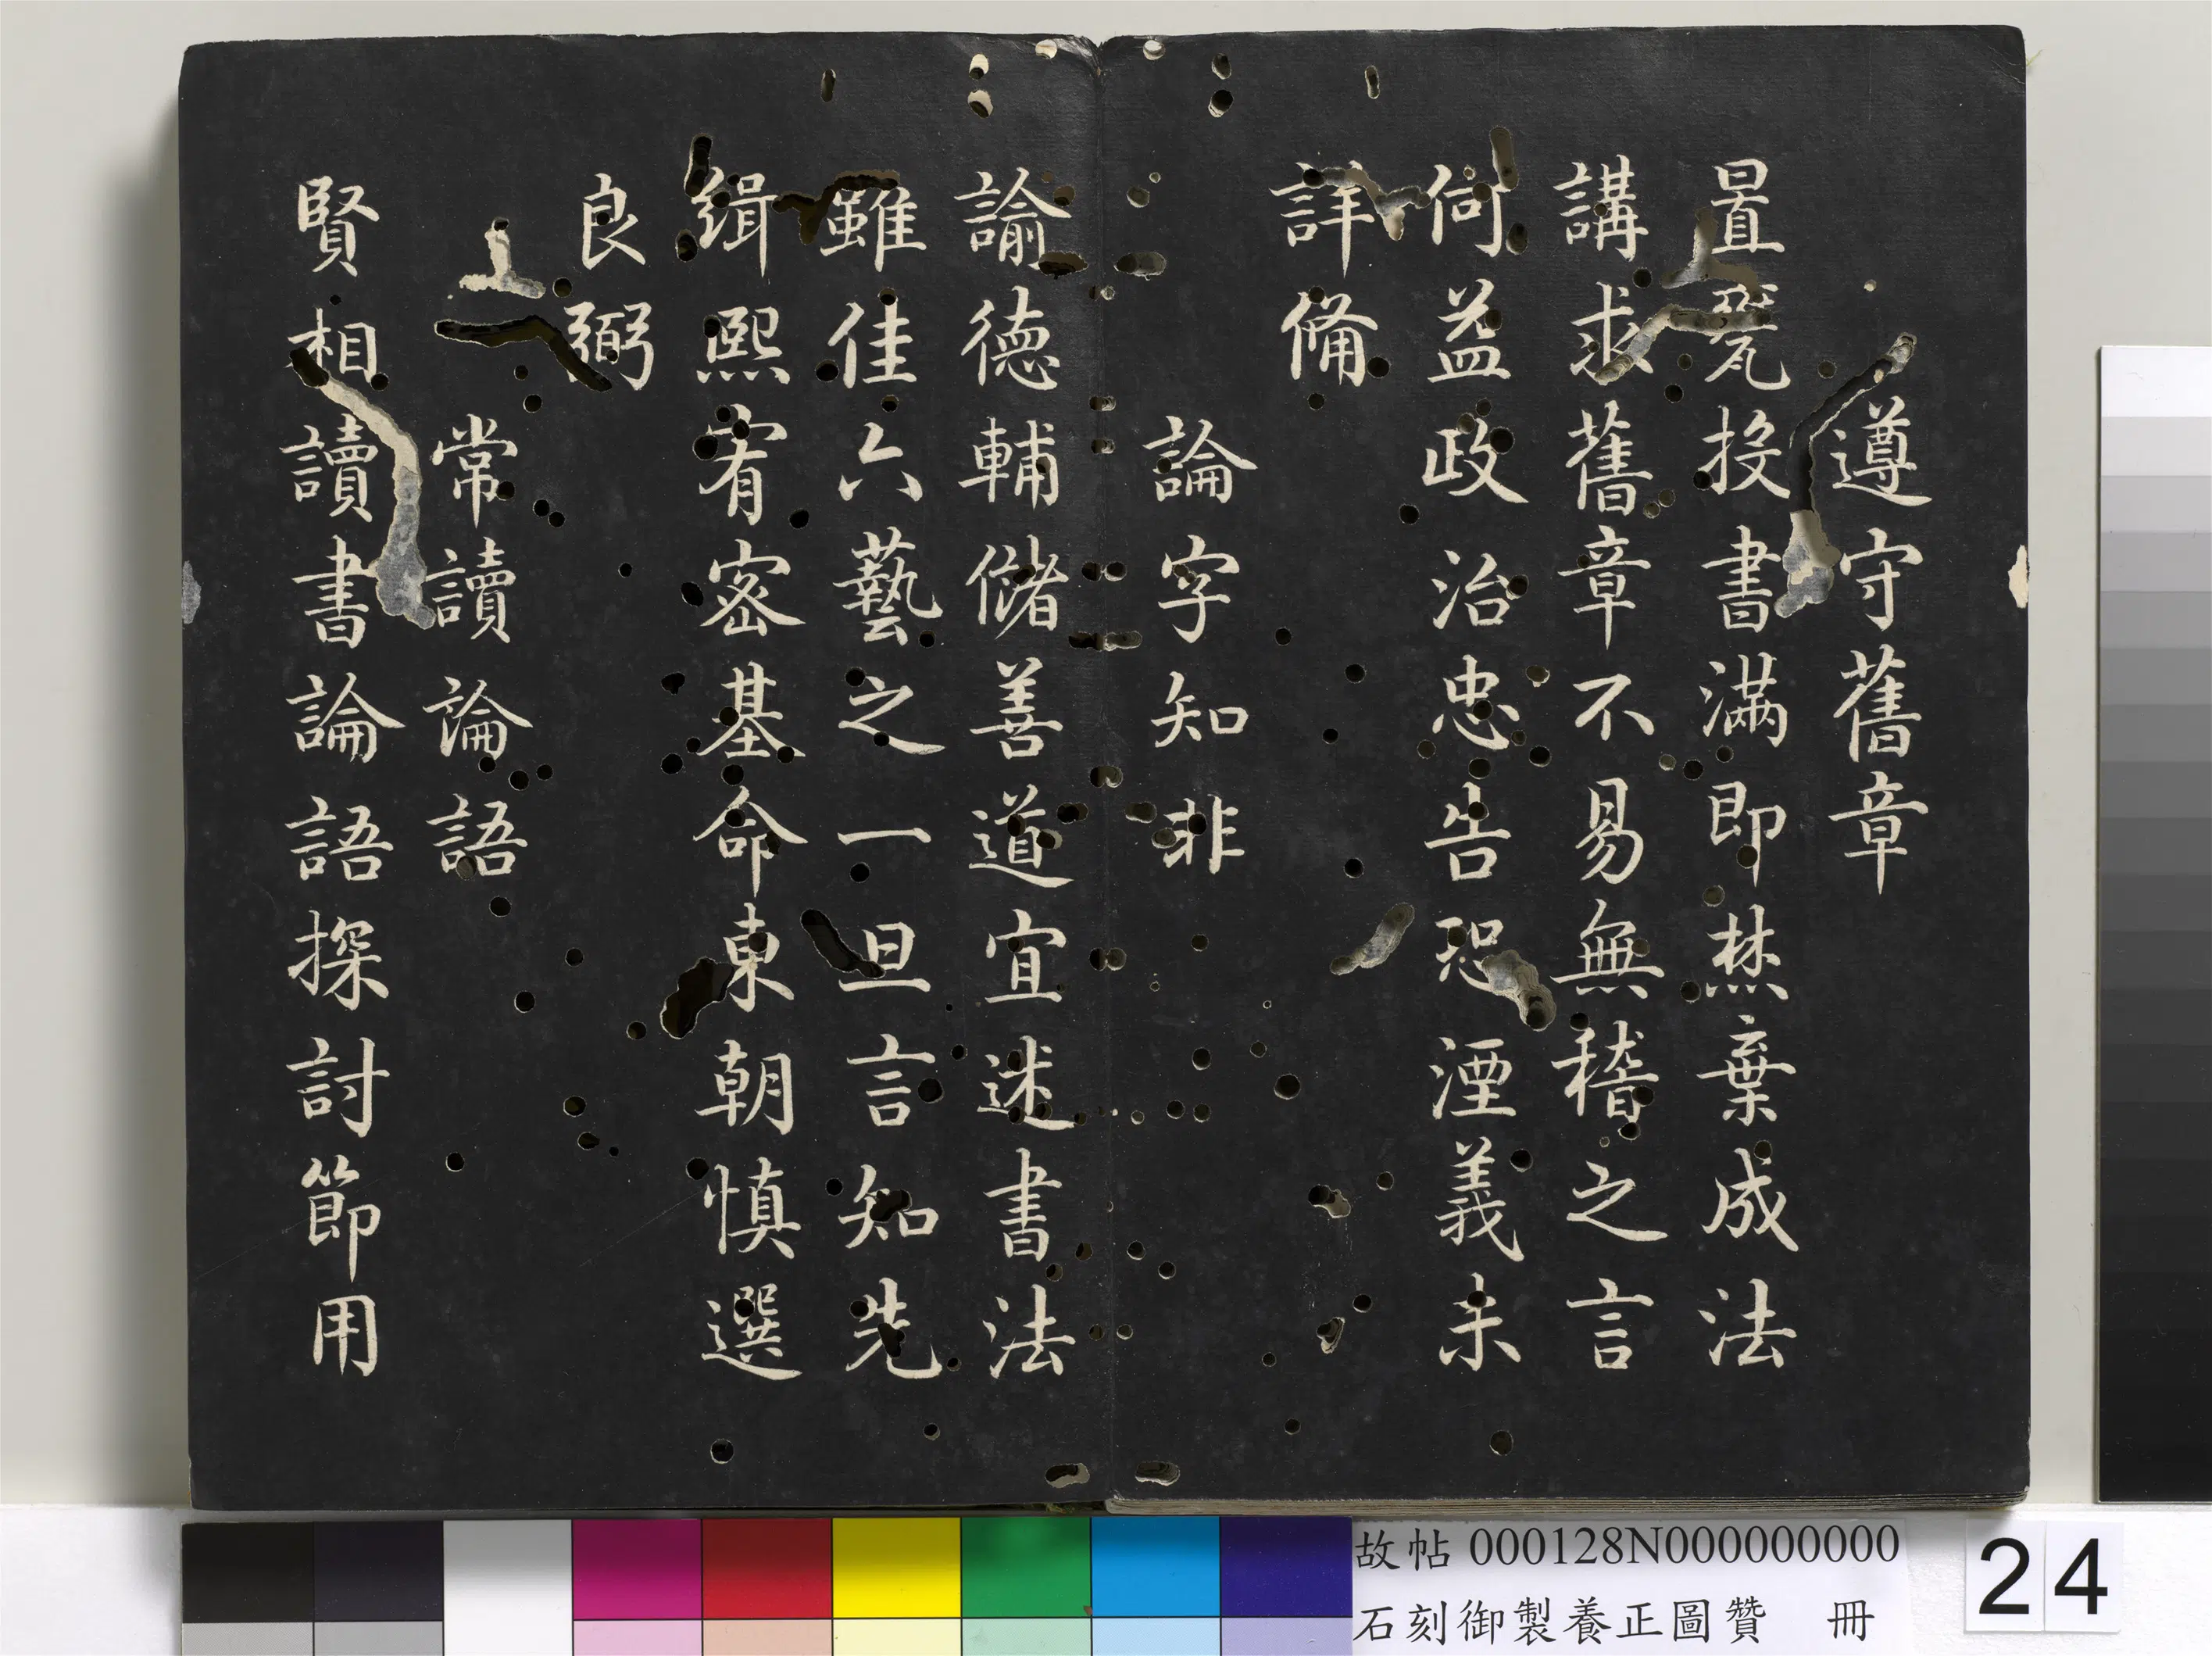 遵守舊章
置甕投書滿即焚棄成法
講求舊章不易無稽之言
何益政治忠告恐湮義未
詳俻
論字知非
諭德輔儲善道宜迷書法
雖佳六藝之一旦言知先
緝熙宥宻基命東朝慎選
良弼
常讀論語
賢相讀書論語探討節用
故帖 000128N000000000
石刻御製養正圖贊 冊
24